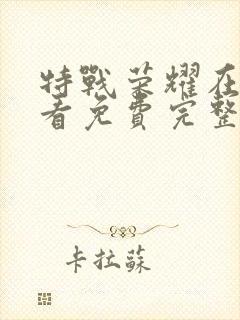 特戰榮耀在
看免費完整
卡拉蘇